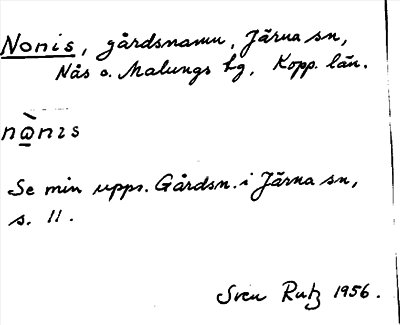 Nonis, gårdsnamn, Järna sn,
Nås o. Malungs tg, Kopp. län.
nə̀nıs
Se min upps. Gårdsn. i Järna sn,
s. 11.
Sven Rutz 1956.